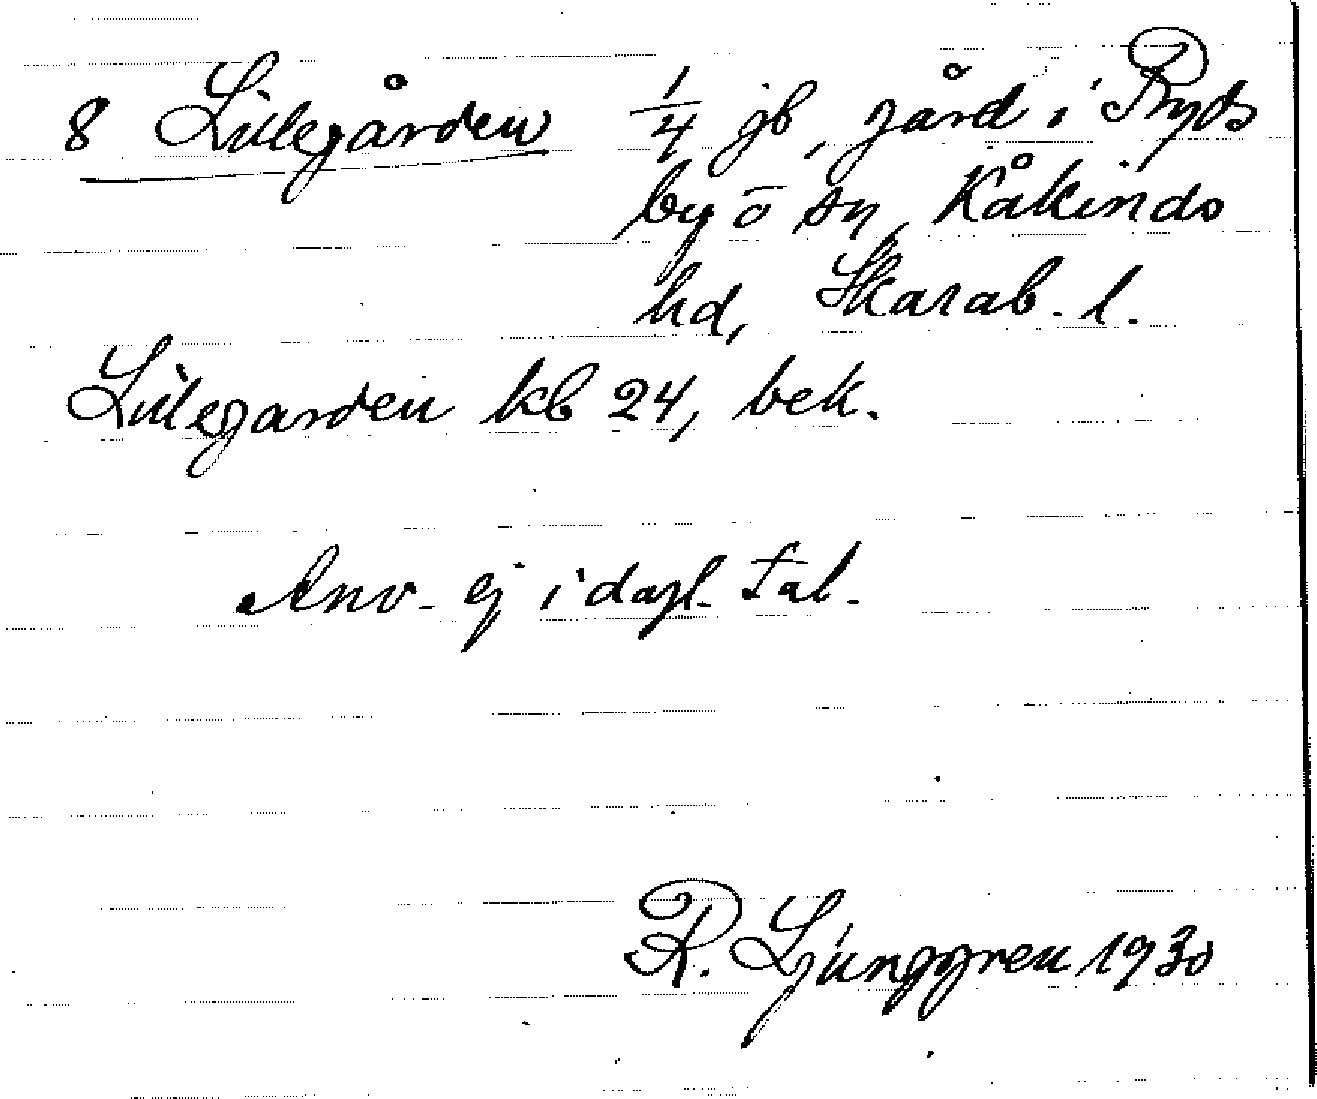 8 Lillegården 1/4 jb, gård i Ryds
by o sn, Kåkinds
hd, Skarab. l.
Lillegarden kb 24, bek.
Anv. ej i dagl. tal.
R. Ljunggren 1930